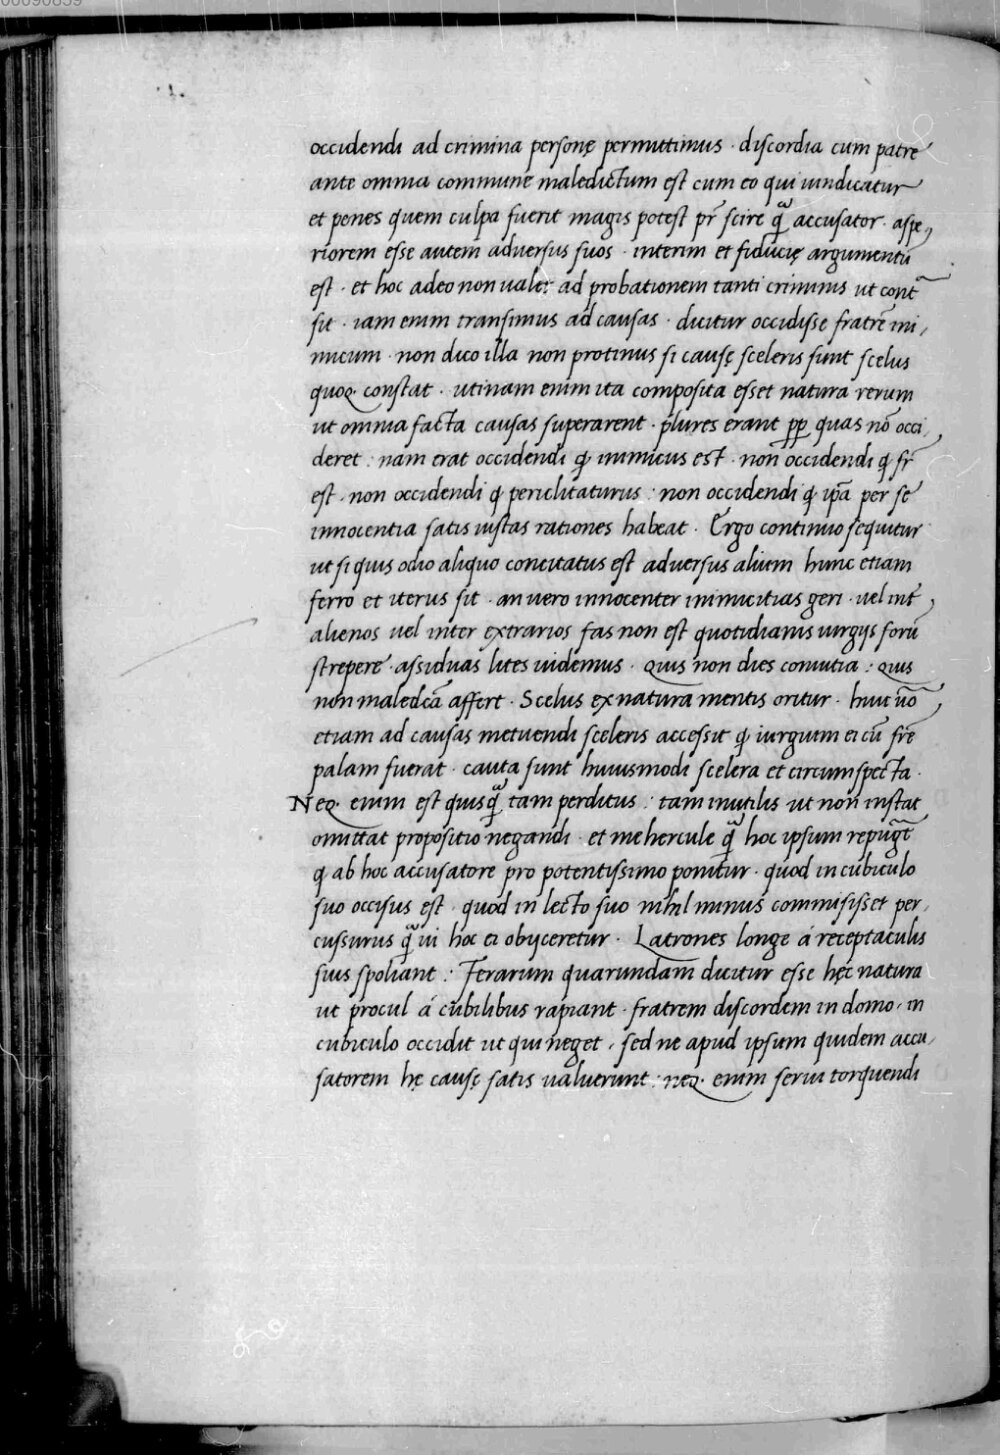 00090859
occidendi ad crimina personę permittimus · discordia cum patre
ante omnia commune maledictum est cum eo qui uindicatur
et penes quem culpa fuerit magis potest pr̄ scire q̃ accusator · aspe,
riorem esse autem adversus suos · interim et fiducię argumentū
est · et hoc adeo non valet ad probationem tanti criminis ut cont̄
sit · iam enim transimus ad causas · dicitur occidisse fratrē ini,
micum · non dico illa non protinus si causę sceleris sunt scelus
quoq. constat · utinam enim ita composita esset natura rerum
ut omnia facta causas superarent · plures erant pp̱ quas nō occi,
deret : nam erat occidendi q̱ inimicus est · non occidendi q̱ fr̄
est · non occidendi q̱ periclitaturus : non occidendi q̱ ip̄a per se
innocentia satis iustas rationes habeat · Ergo continuo sequitur
ut si quis odio aliquo concitatus est adversus alium hunc etiam
ferro et iterus sit · an vero innocenter inimicitias geri · vel int̄,
alienos vel inter extrarios fas non est quotidianis iurgijs forū
strepere · assiduas lites uidemus · Quis non dies conuitia : Quis
non maledc̄a affert · Scelus ex natura mentis oritur · huic ūo,
etiam ad causas metuendi sceleris accessit q̱ iurgium ei cū fr̄e
palam fuerat · cauta sunt huiusmodi scelera et circumspecta ·
Neq. enim est quisq̃ tam perditus : tam inutilis ut non instat
omittat propositio negandi · et mehercule q̃ hoc ipsum repugt̄
q ab hoc accusatore pro potentissimo ponitur · quod in cubiculo
suo occisus est · quod in lecto suo nihil minus commisisset per,
cussurus q̃ ui hoc ei obijceretur · Latrones longe á receptaculis
suis spoliant : Ferarum quarundam dicitur esse hęc natura
ut procul á cubilibus rapiant · fratrem discordem in domo · in
cubiculo occidit ut qui neget · sed ne apud ipsum quidem accu,
satorem hę causę satis ualuerunt : neq. enim serui torquendi